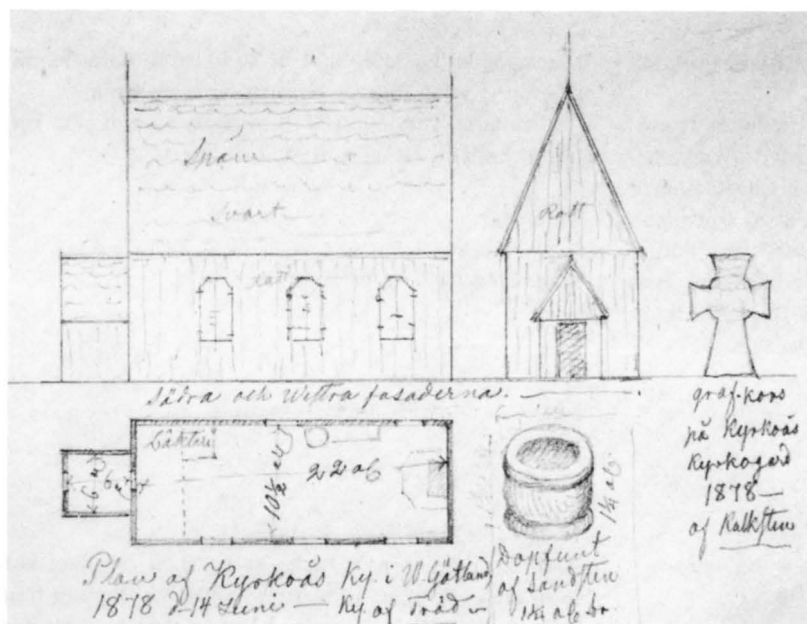 Spån
Svart
Rött
Södra och Westra fasaderna.
graf-kors
på Kyrkoås
Kyrkogård
1878 —
af Kalksten
Läktare
10½ al
22 al
6 al
6 al
1¼ al.
Plan af Kyrkoås Ky. i W. Götland
1878 d. 14 Juni — Ky af Träd —
Dopfunt
af Sandsten
1¼ al br